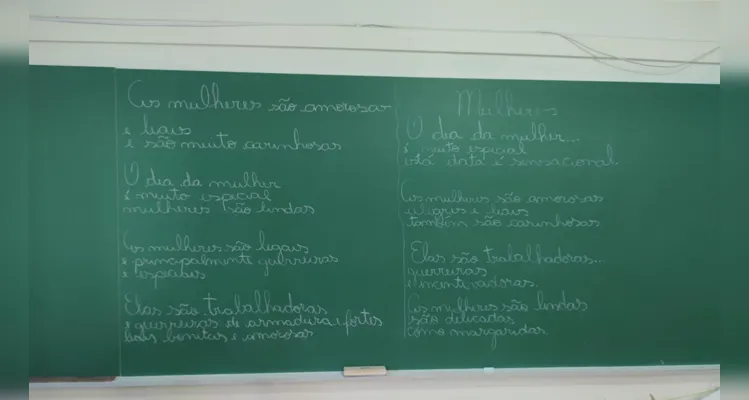 As mulheres são amorosas
e leais
e são muito carinhosas
O dia da mulher
é muito especial
mulheres são lindas
As mulheres são legais
e principalmente guerreiras
e especiais
Elas são trabalhadoras
e guerreiras de armadura e fortes
bonitas e amorosas
Mulheres
O dia da mulher...
é muito especial
está data é sensacional.
As mulheres são amorosas
alegres e leais
também são carinhosas
Elas são trabalhadoras...
guerreiras
e incentivadoras.
As mulheres são lindas
são delicadas
como margaridas.